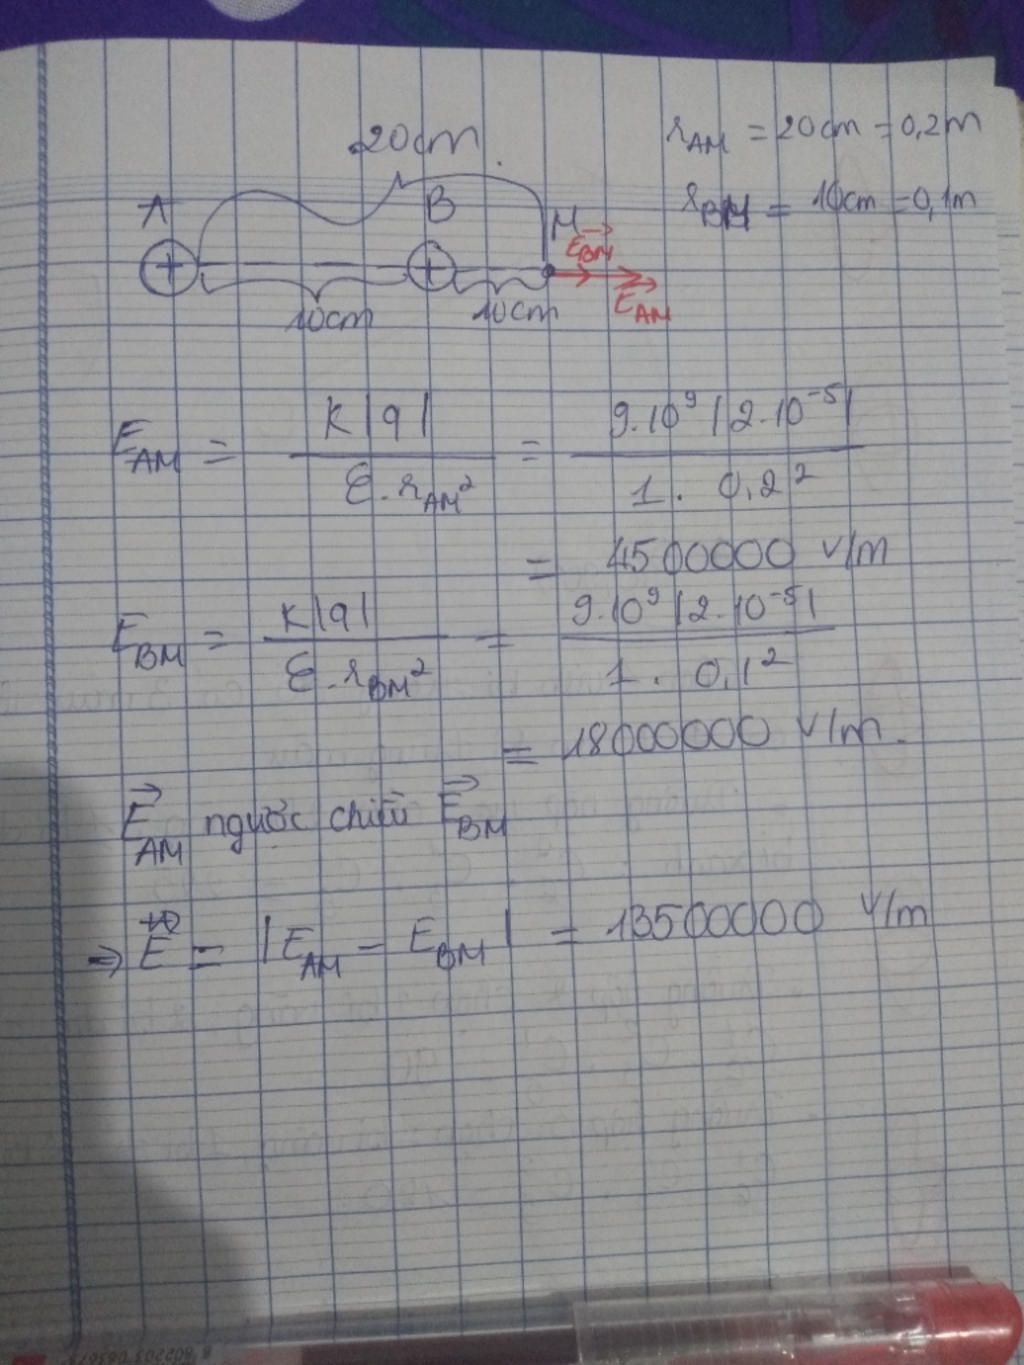 20cm.
r_AM = 20cm = 0,2m
r_BM = 10cm = 0,1m
A B M
+ +
E_BM→
E_AM→
10cm 10cm
E_AM = K|q| / ε.r_AM² = 9.10⁹|2.10⁻⁵| / 1.0,2²
= 4500000 V/m
E_BM = K|q| / ε.r_BM² = 9.10⁹|2.10⁻⁵| / 1.0,1²
= 18000000 V/m.
E_AM→ ngược chiều E_BM→
⇒ E→ = |E_AM - E_BM| = 13500000 V/m